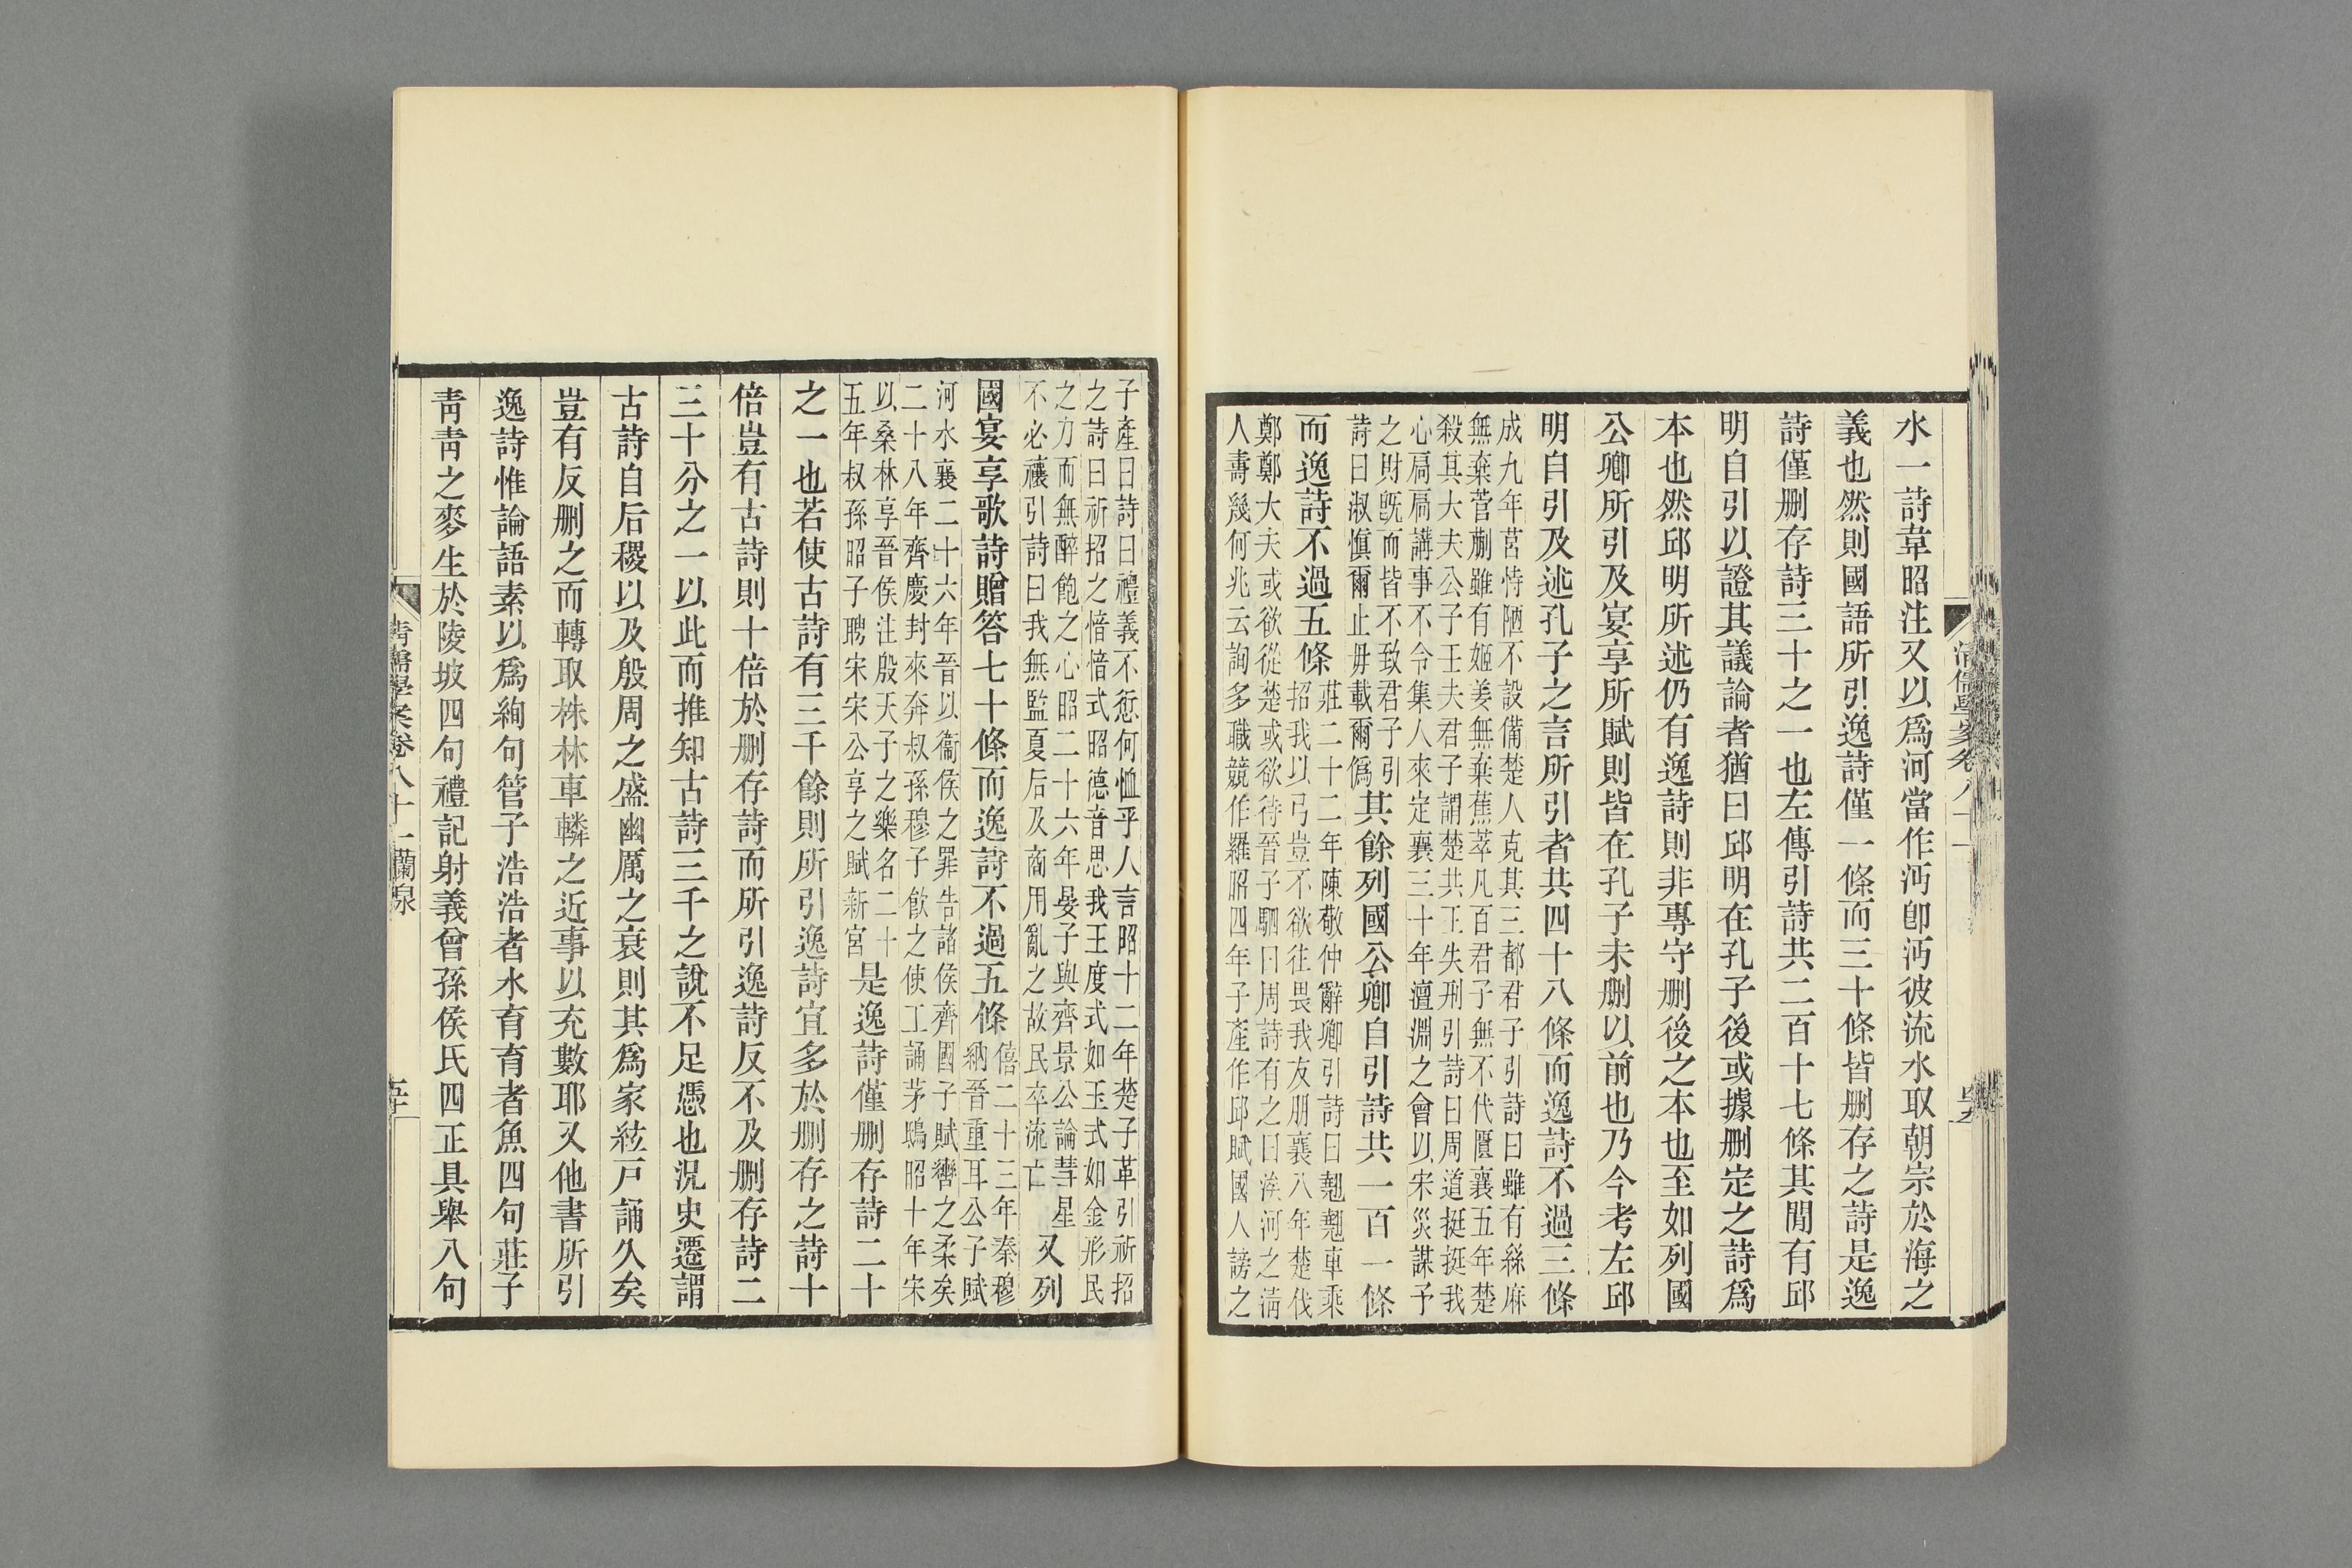 水一詩韋昭注又以爲河當作沔卽沔彼流水取朝宗於海之
義也然則國語所引逸詩僅一條而三十條皆删存之詩是逸
詩僅删存詩三十之一也左傳引詩共二百十七條其閒有邱
明自引以證其議論者猶曰邱明在孔子後或據删定之詩爲
本也然邱明所述仍有逸詩則非專守删後之本也至如列國
公卿所引及宴享所賦則皆在孔子未删以前也乃今考左邱
明自引及述孔子之言所引者共四十八條而逸詩不過三條
成九年莒恃陋不設備楚人克其三都君子引詩曰雖有絲麻
無棄菅蒯雖有姬姜無棄蕉萃凡百君子無不代匱襄五年楚
殺其大夫公子壬夫君子謂楚共王失刑引詩曰周道挺挺我
心扃扃講事不令集人來定襄三十年澶淵之會以宋災謀予
之財旣而皆不致君子引
詩曰淑愼爾止毋載爾僞
其餘列國公卿自引詩共一百一條
而逸詩不過五條
莊二十二年陳敬仲辭卿引詩曰翹翹車乘
招我以弓豈不欲往畏我友朋襄八年楚伐
鄭鄭大夫或欲從楚或欲待晉子駟曰周詩有之曰俟河之淸
人壽幾何兆云詢多職競作羅昭四年子產作邱賦國人謗之
清儒學案卷八十一
子產曰詩曰禮義不愆何恤乎人言昭十二年楚子革引祈招
之詩曰祈招之愔愔式昭德音思我王度式如玉式如金形民
之力而無醉飽之心昭二十六年晏子與齊景公論彗星
不必禳引詩曰我無監夏后及商用亂之故民卒流亡
又列
國宴享歌詩贈答七十條而逸詩不過五條
僖二十三年秦穆
納晉重耳公子賦
河水襄二十六年晉以衞侯之罪告諸侯齊國子賦轡之柔矣
二十八年齊慶封來奔叔孫穆子飮之使工誦茅鴟昭十年宋
以桑林享晉侯注殷天子之樂名二十
五年叔孫昭子聘宋宋公享之賦新宮
是逸詩僅删存詩二十
之一也若使古詩有三千餘則所引逸詩宜多於删存之詩十
倍豈有古詩則十倍於删存詩而所引逸詩反不及删存詩二
三十分之一以此而推知古詩三千之說不足憑也況史遷謂
古詩自后稷以及殷周之盛幽厲之衰則其爲家絃戸誦久矣
豈有反删之而轉取株林車轔之近事以充數耶又他書所引
逸詩惟論語素以爲絢句管子浩浩者水育育者魚四句莊子
靑靑之麥生於陵坡四句禮記射義曾孫侯氏四正具舉八句
清儒學案卷八十一 蘭泉